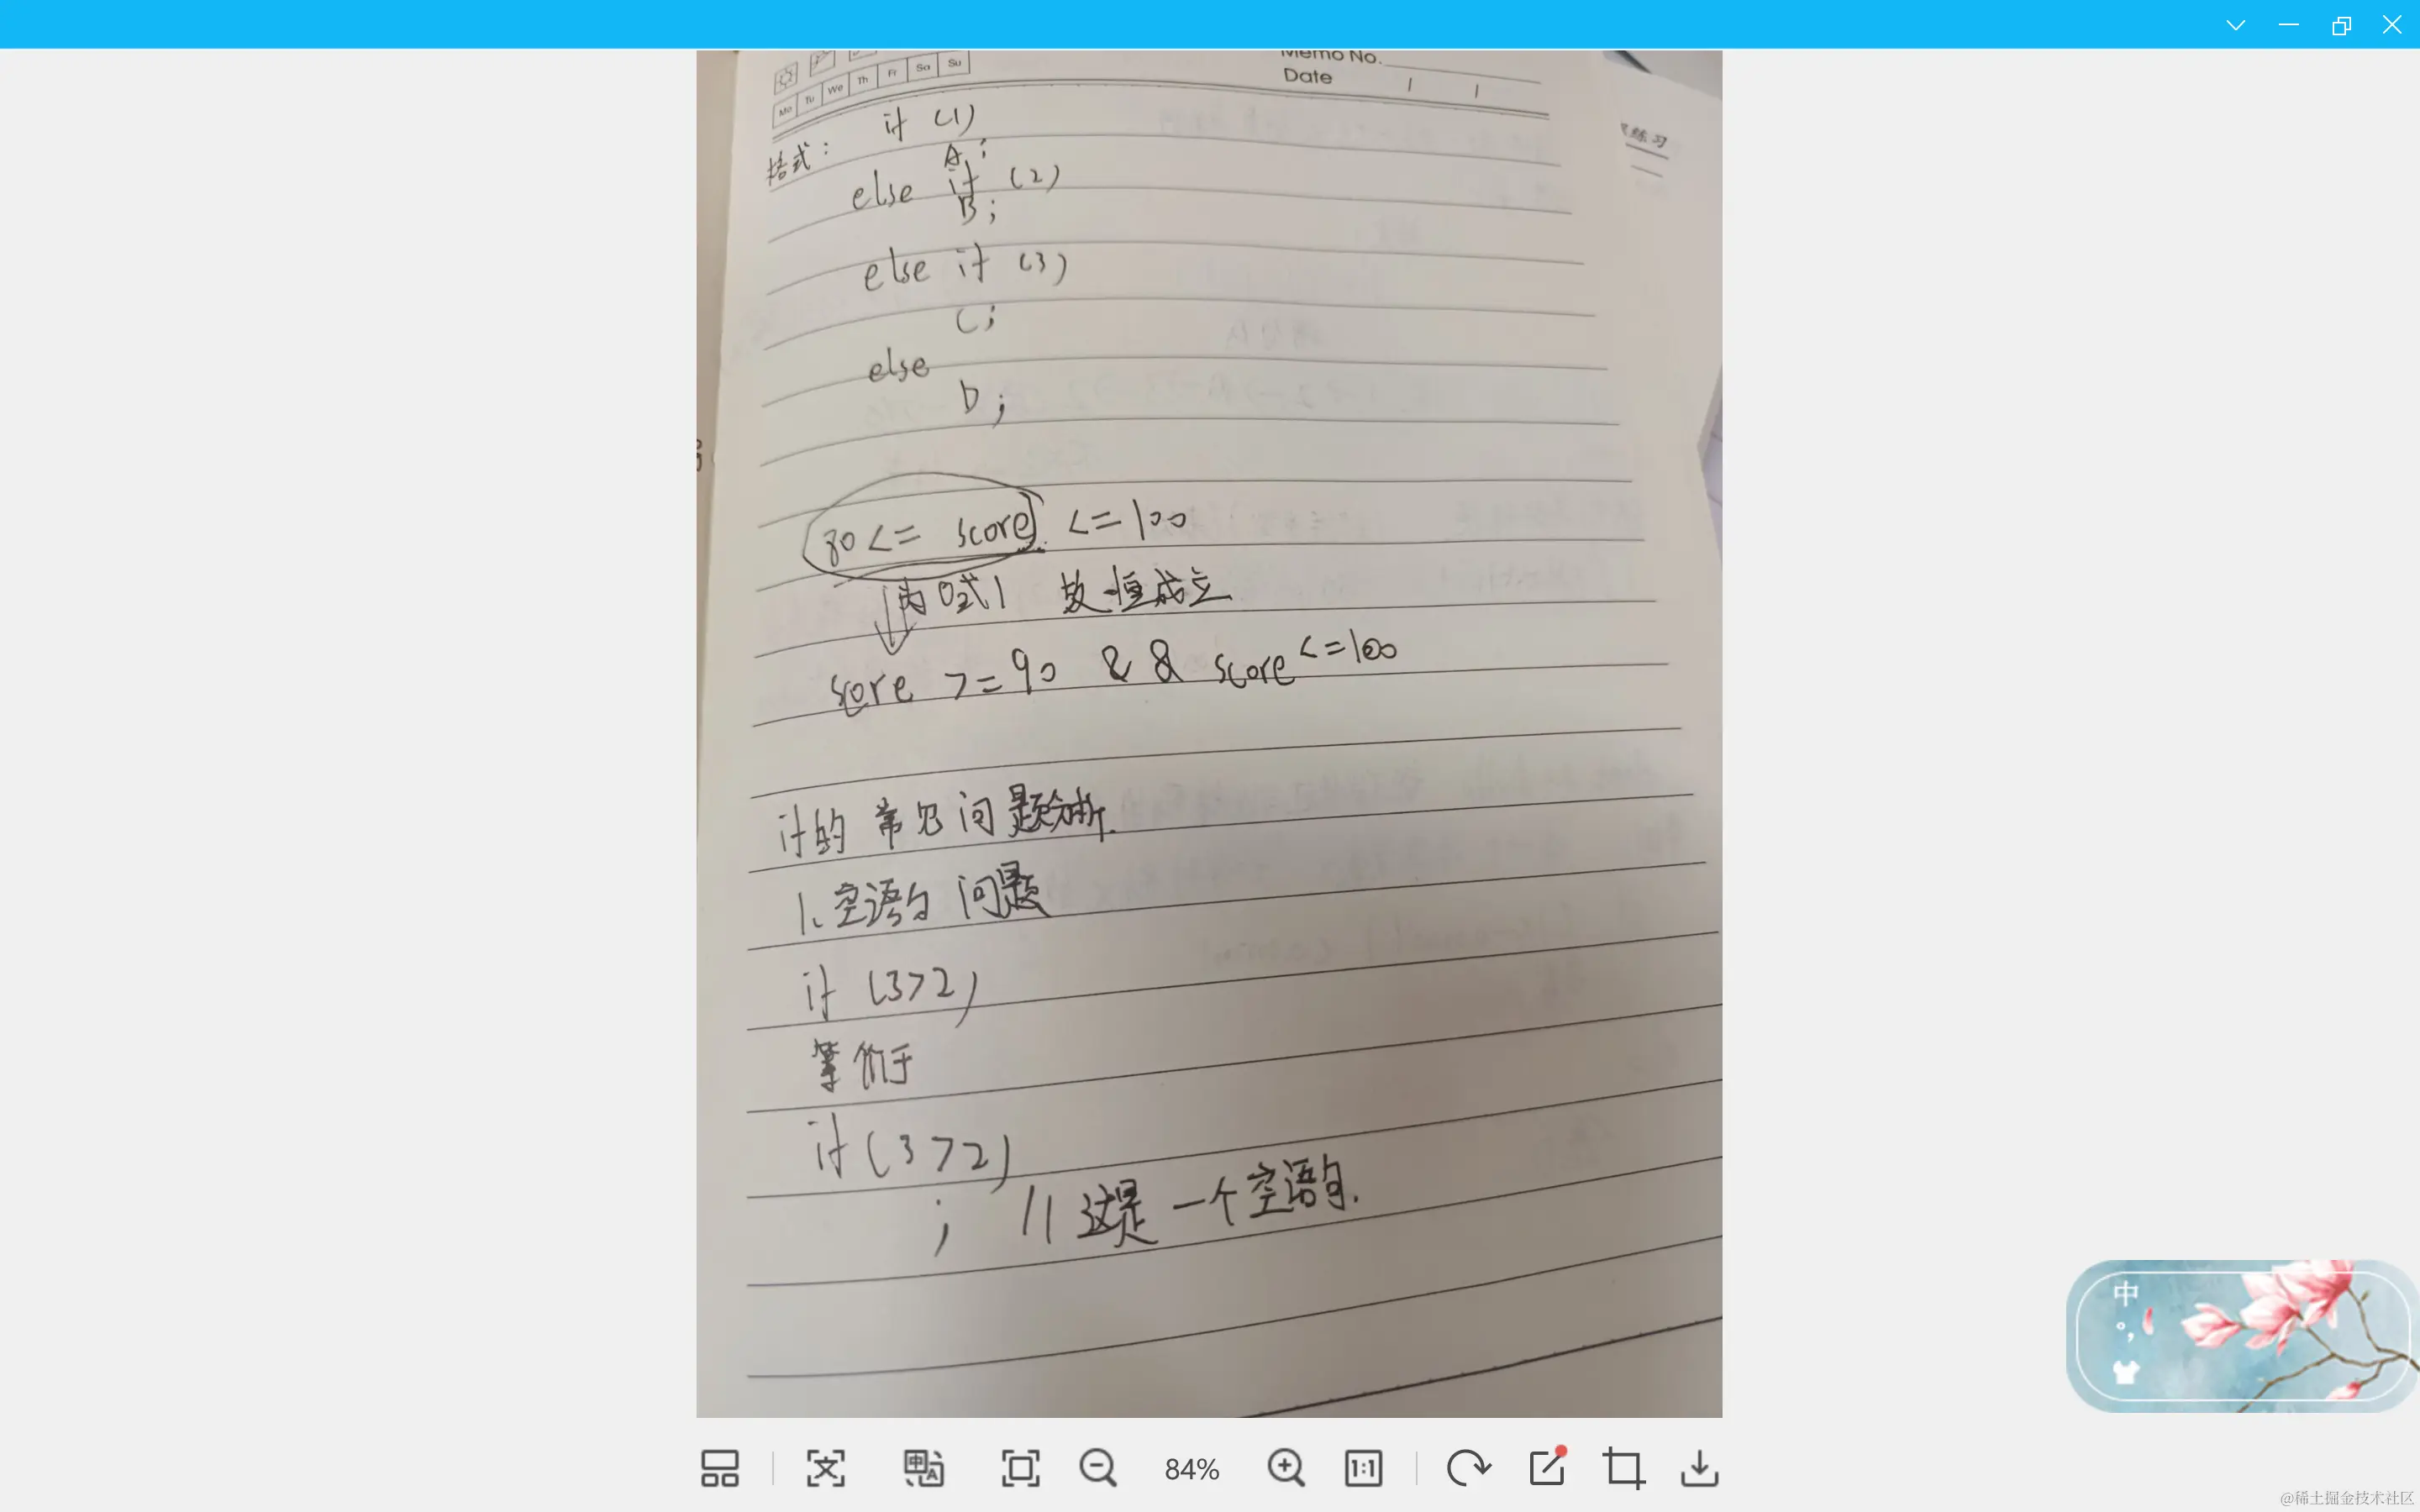 Memo No.
Mo Tu We Th Fr Sa Su
Date / /
练习
格式: if (1)
A;
else if (2)
B;
else if (3)
C;
else
D;
80<= score <=100
为0或1 故恒成立
score >=90 && score <=100
if的常见问题分析.
1、空语句问题
if (3>2)
等价于
if (3>2)
; //这是一个空语句.
中
84%
1:1
@稀土掘金技术社区